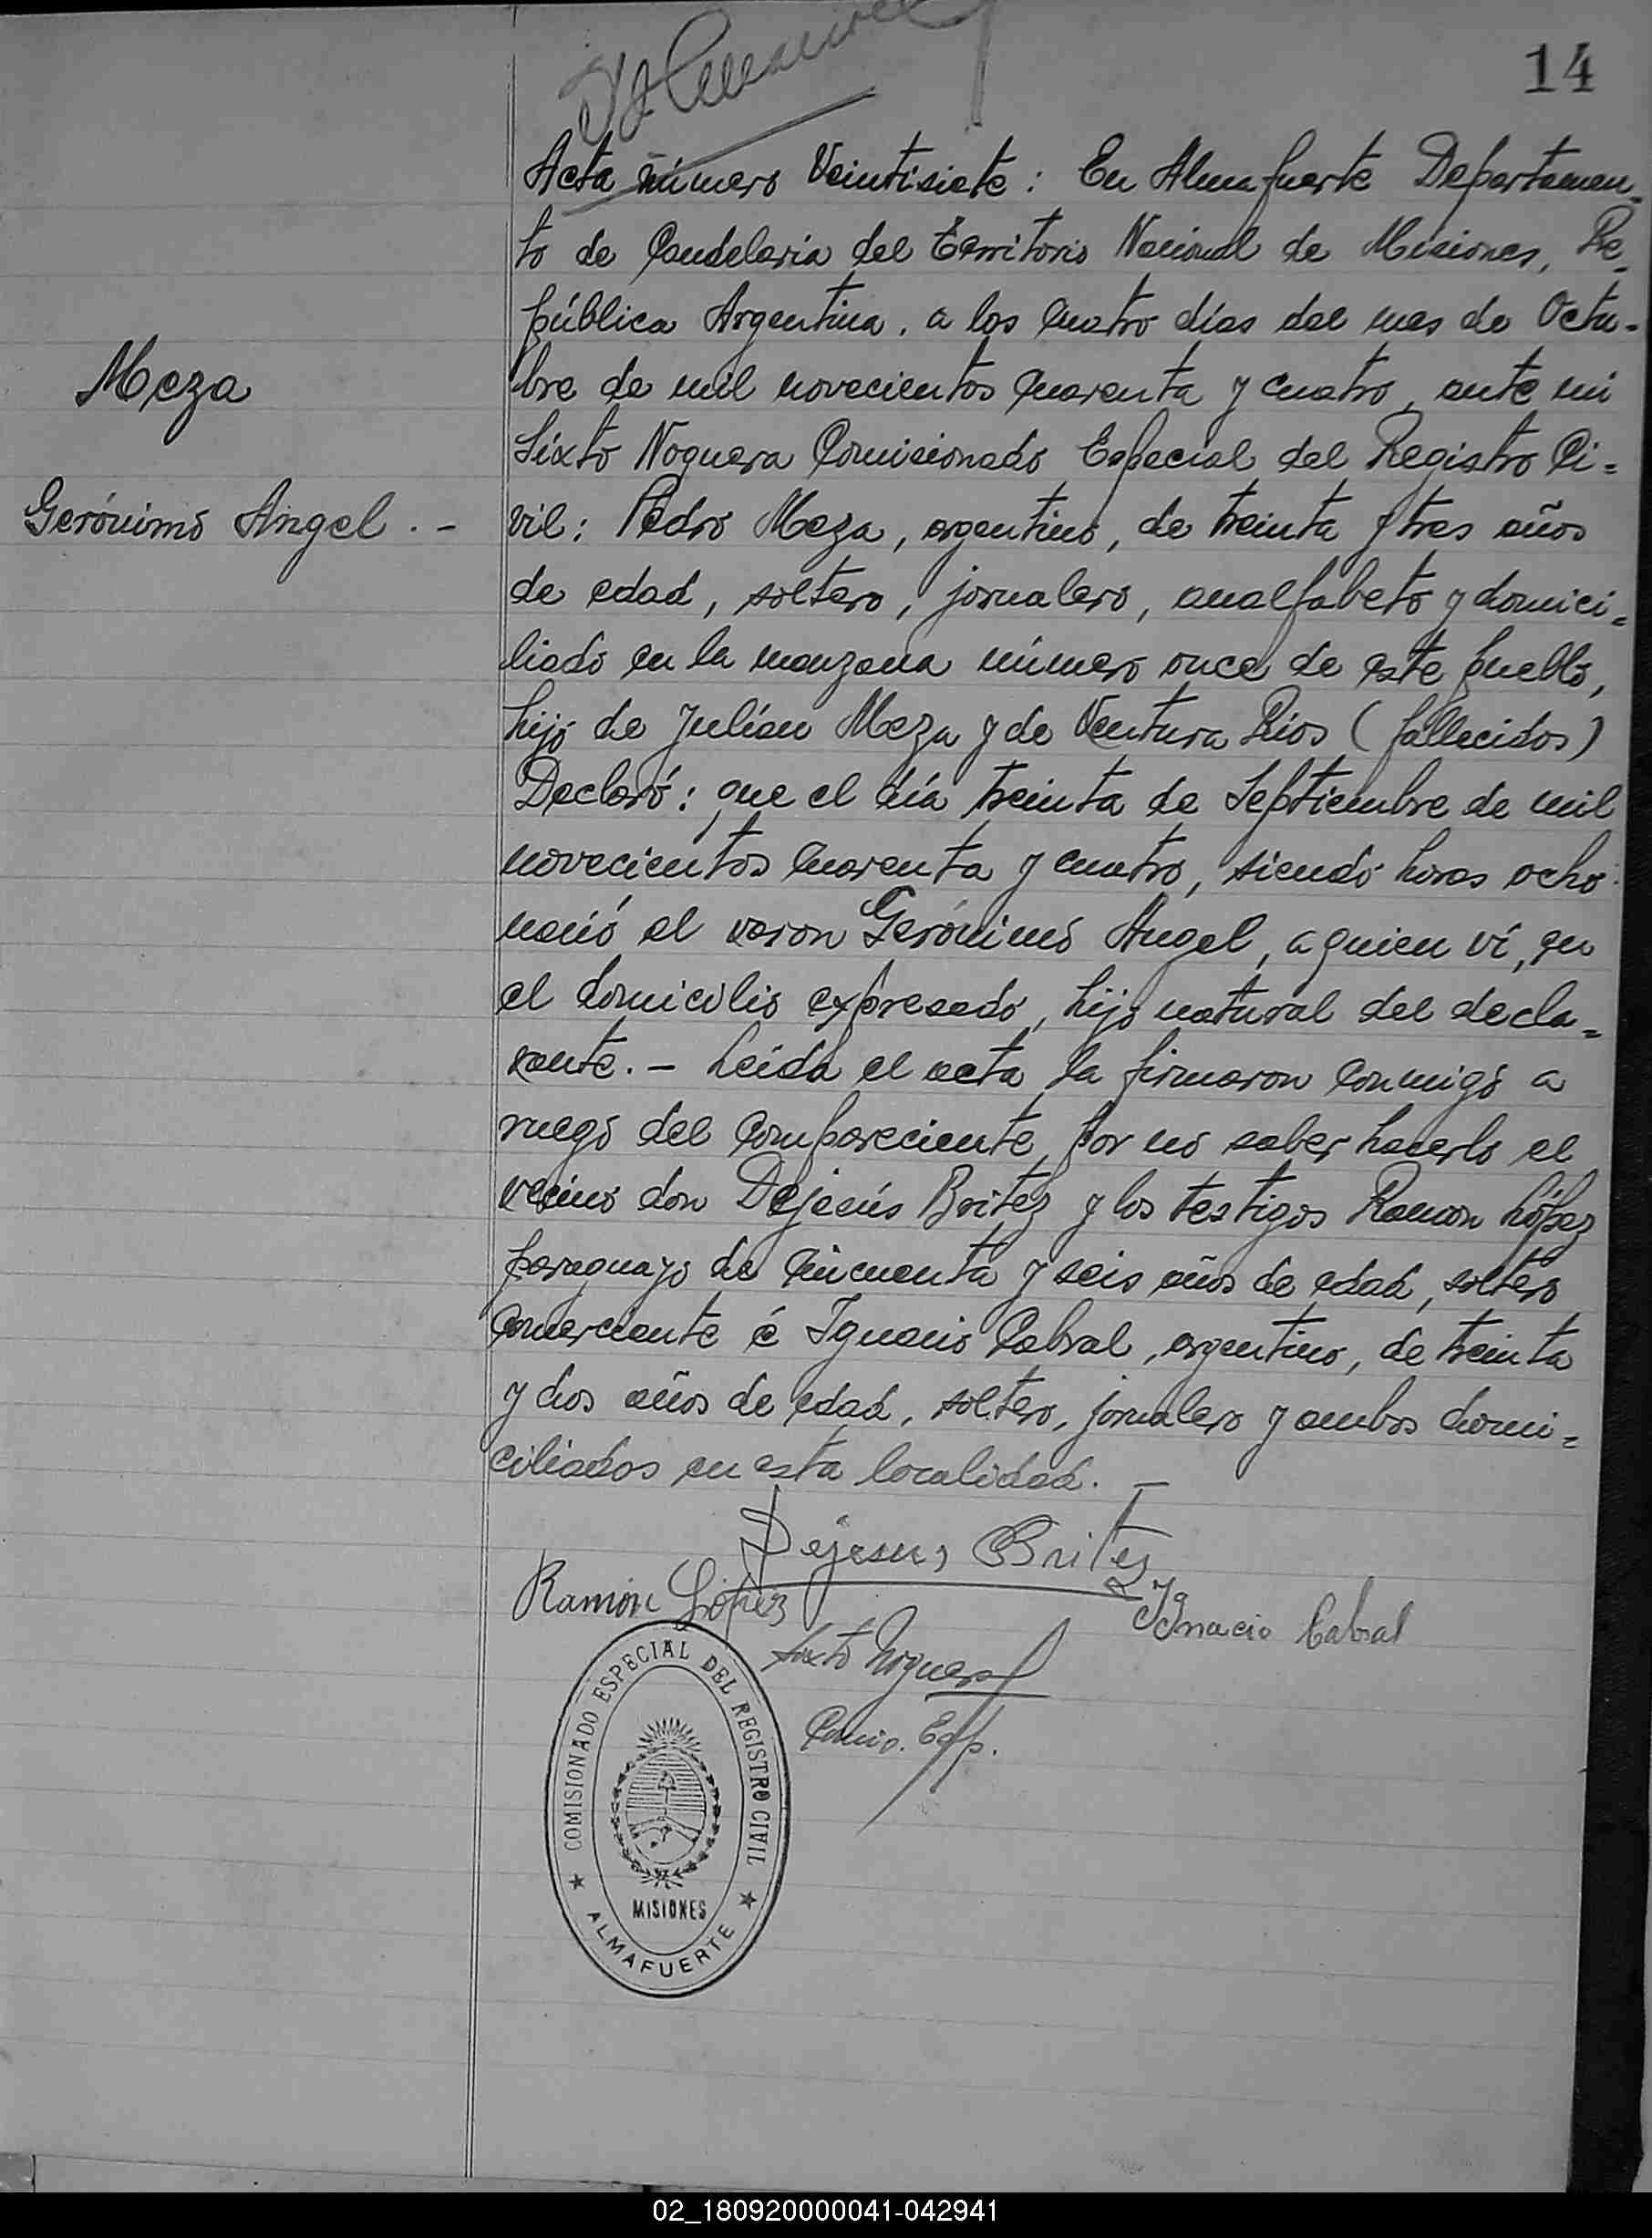 14
Acta número Veintisiete: En Almafuerte Departamen-
to de Candelaria del Territorio Nacional de Misiones, Re-
pública Argentina, a los cuatro días del mes de Octu-
bre de mil novecientos cuarenta y cuatro, ante mi
Sixto Noguera Comisionado Especial del Registro Ci=
vil: Pedro Meza, argentino, de treinta y tres años
de edad, soltero, jornalero, analfabeto y domici=
liado en la manzana número once de este pueblo,
hijo de Julián Meza y de Ventura Rios (fallecidos)
Declaró: que el día treinta de Septiembre de mil
novecientos cuarenta y cuatro, siendo horas ocho
nació el varon Gerónimo Angel, a quien ví, en
el domicilio expresado, hijo natural del decla=
rante.- Leída el acta la firmaron conmigo a
ruego del compareciente por no saber hacerlo el
vecino don Dejesús Britez y los testigos Ramon López
paraguayo de cincuenta y seis años de edad, soltero
comerciante é Ignacio Cabral, argentino, de treinta
y dos años de edad, soltero, jornalero y ambos domi=
ciliados en esta localidad. -
Meza
Gerónimo Angel . -
Dejesus Britez
Ramón López
Ignacio Cabral
Sixto Noguera
Comis. Esp.
COMISIONADO ESPECIAL DEL REGISTRO CIVIL
MISIONES
★ ALMAFUERTE ★
02_180920000041-042941